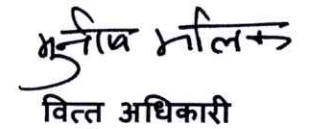 मुनीष मलिक
वित्त अधिकारी